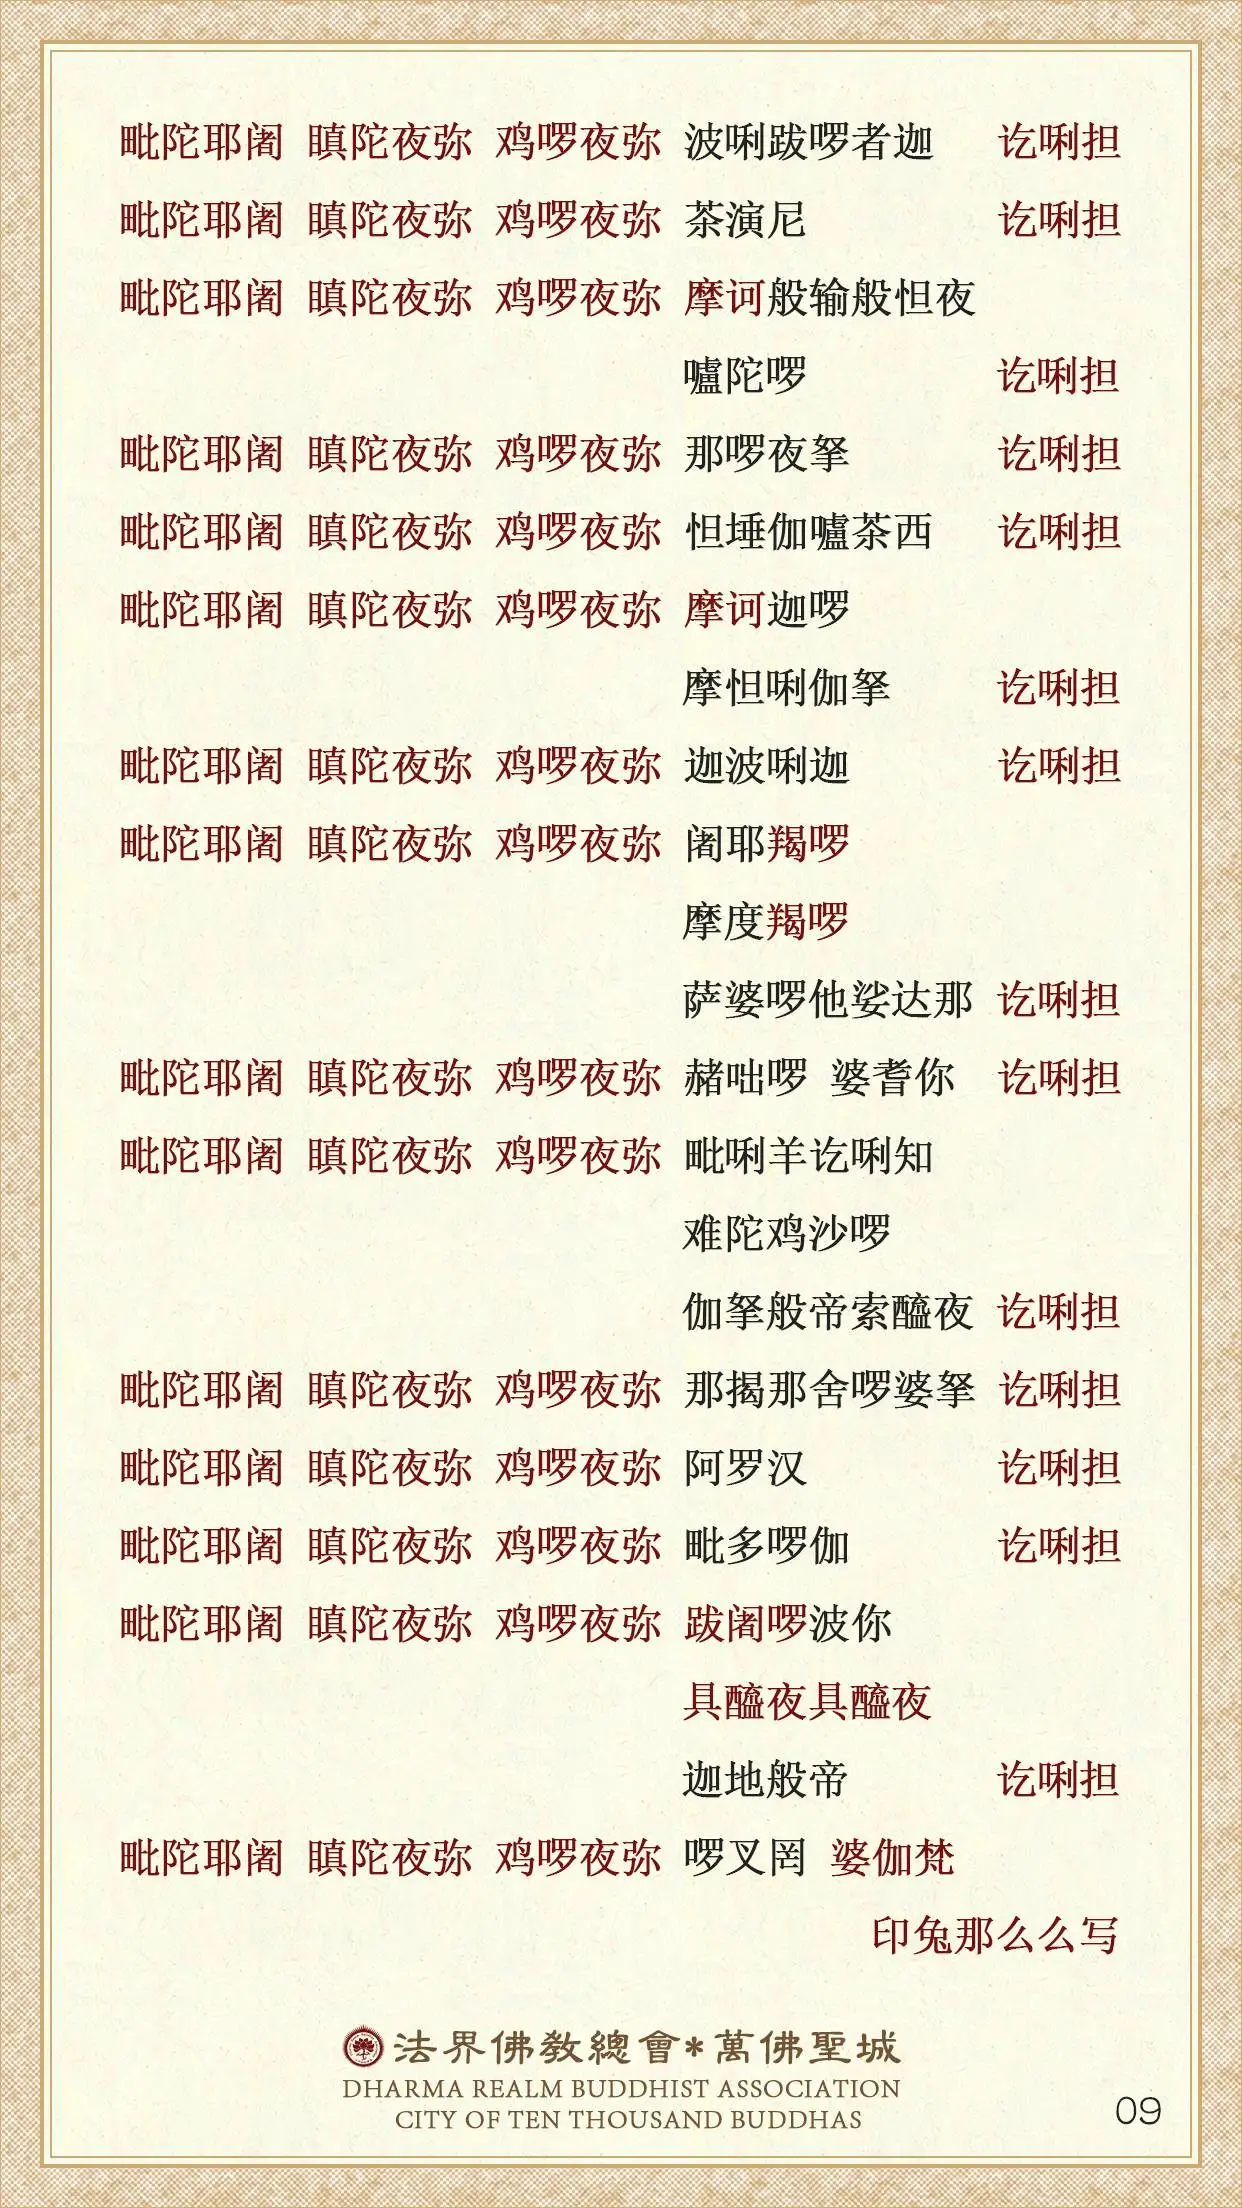 毗陀耶阇 瞋陀夜弥 鸡啰夜弥 波唎跋啰者迦 讫唎担
毗陀耶阇 瞋陀夜弥 鸡啰夜弥 茶演尼 讫唎担
毗陀耶阇 瞋陀夜弥 鸡啰夜弥 摩诃般输般怛夜
嚧陀啰 讫唎担
毗陀耶阇 瞋陀夜弥 鸡啰夜弥 那啰夜拏 讫唎担
毗陀耶阇 瞋陀夜弥 鸡啰夜弥 怛埵伽嚧茶西 讫唎担
毗陀耶阇 瞋陀夜弥 鸡啰夜弥 摩诃迦啰
摩怛唎伽拏 讫唎担
毗陀耶阇 瞋陀夜弥 鸡啰夜弥 迦波唎迦 讫唎担
毗陀耶阇 瞋陀夜弥 鸡啰夜弥 阇耶羯啰
摩度羯啰
萨婆啰他娑达那 讫唎担
毗陀耶阇 瞋陀夜弥 鸡啰夜弥 赭咄啰 婆耆你 讫唎担
毗陀耶阇 瞋陀夜弥 鸡啰夜弥 毗唎羊讫唎知
难陀鸡沙啰
伽拏般帝索醯夜 讫唎担
毗陀耶阇 瞋陀夜弥 鸡啰夜弥 那揭那舍啰婆拏 讫唎担
毗陀耶阇 瞋陀夜弥 鸡啰夜弥 阿罗汉 讫唎担
毗陀耶阇 瞋陀夜弥 鸡啰夜弥 毗多啰伽 讫唎担
毗陀耶阇 瞋陀夜弥 鸡啰夜弥 跋阇啰波你
具醯夜具醯夜
迦地般帝 讫唎担
毗陀耶阇 瞋陀夜弥 鸡啰夜弥 啰叉罔 婆伽梵
印兔那么么写
法界佛教總會*萬佛聖城
DHARMA REALM BUDDHIST ASSOCIATION
CITY OF TEN THOUSAND BUDDHAS
09